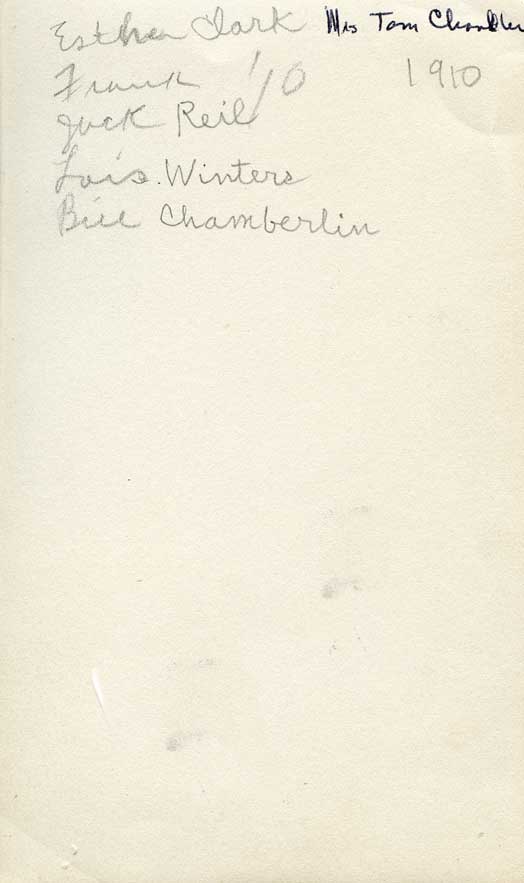 Esther Clark Mrs Tom Chandler
Frank '10 1910
Jack Reil
Lois Winters
Bill Chamberlin